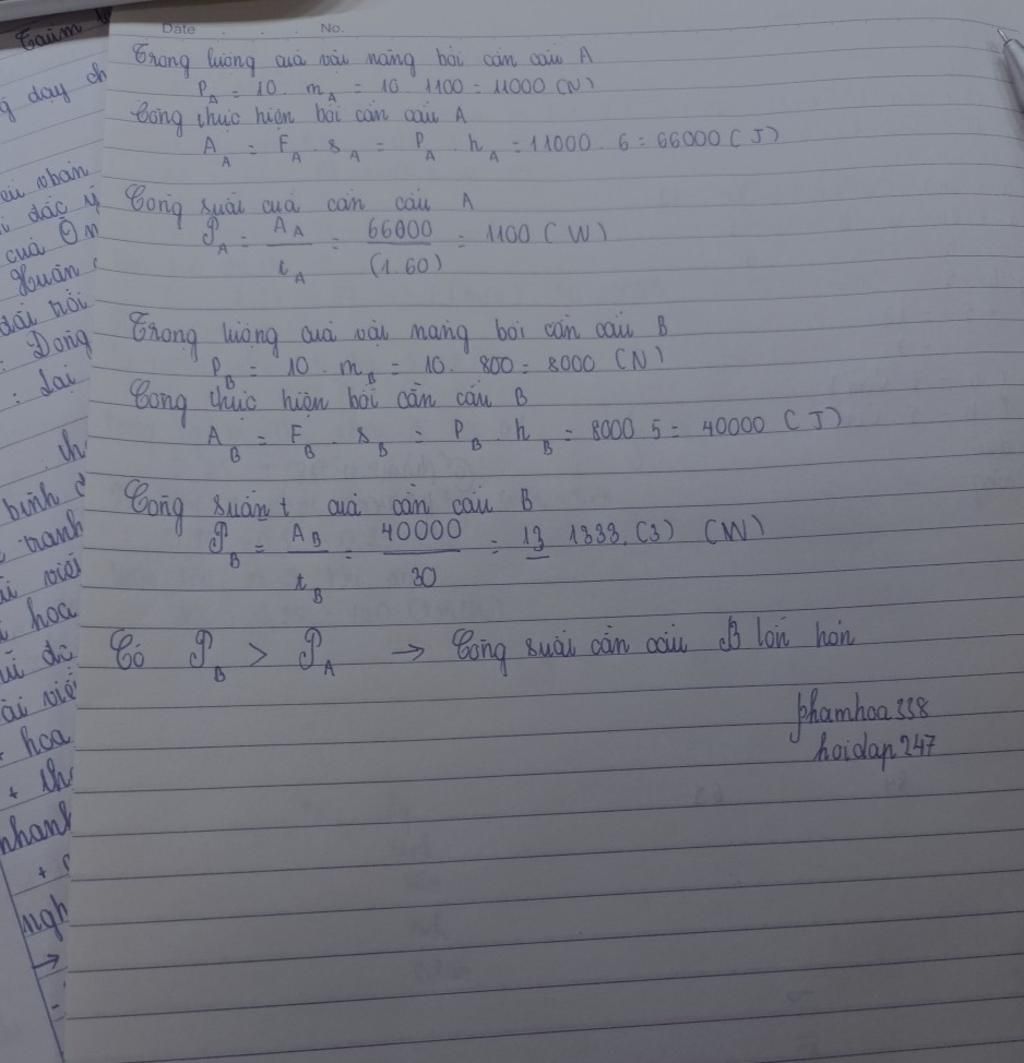 Date . . . No.
Trọng lượng của vật nâng bởi cần cẩu A
P_A = 10 . m_A = 10 . 1100 = 11000 (N)
Công thực hiện bởi cần cẩu A
A_A = F_A . s_A = P_A . h_A = 11000 . 6 = 66000 (J)
Công suất của cần cẩu A
𝒫_A = A_A / t_A = 66000 / (1.60) = 1100 (W)
Trọng lượng của vật nâng bởi cần cẩu B
P_B = 10 . m_B = 10 . 800 = 8000 (N)
Công thực hiện bởi cần cẩu B
A_B = F_B . s_B = P_B . h_B = 8000 . 5 = 40000 (J)
Công suất của cần cẩu B
𝒫_B = A_B / t_B = 40000 / 30 = 13 1333,(3) (W)
Có 𝒫_B > 𝒫_A → Công suất cần cẩu B lớn hơn
phamhoa338
hoidap247
dạy
của
Huân
Dòng
: Lại
bình
tranh
hoa
+